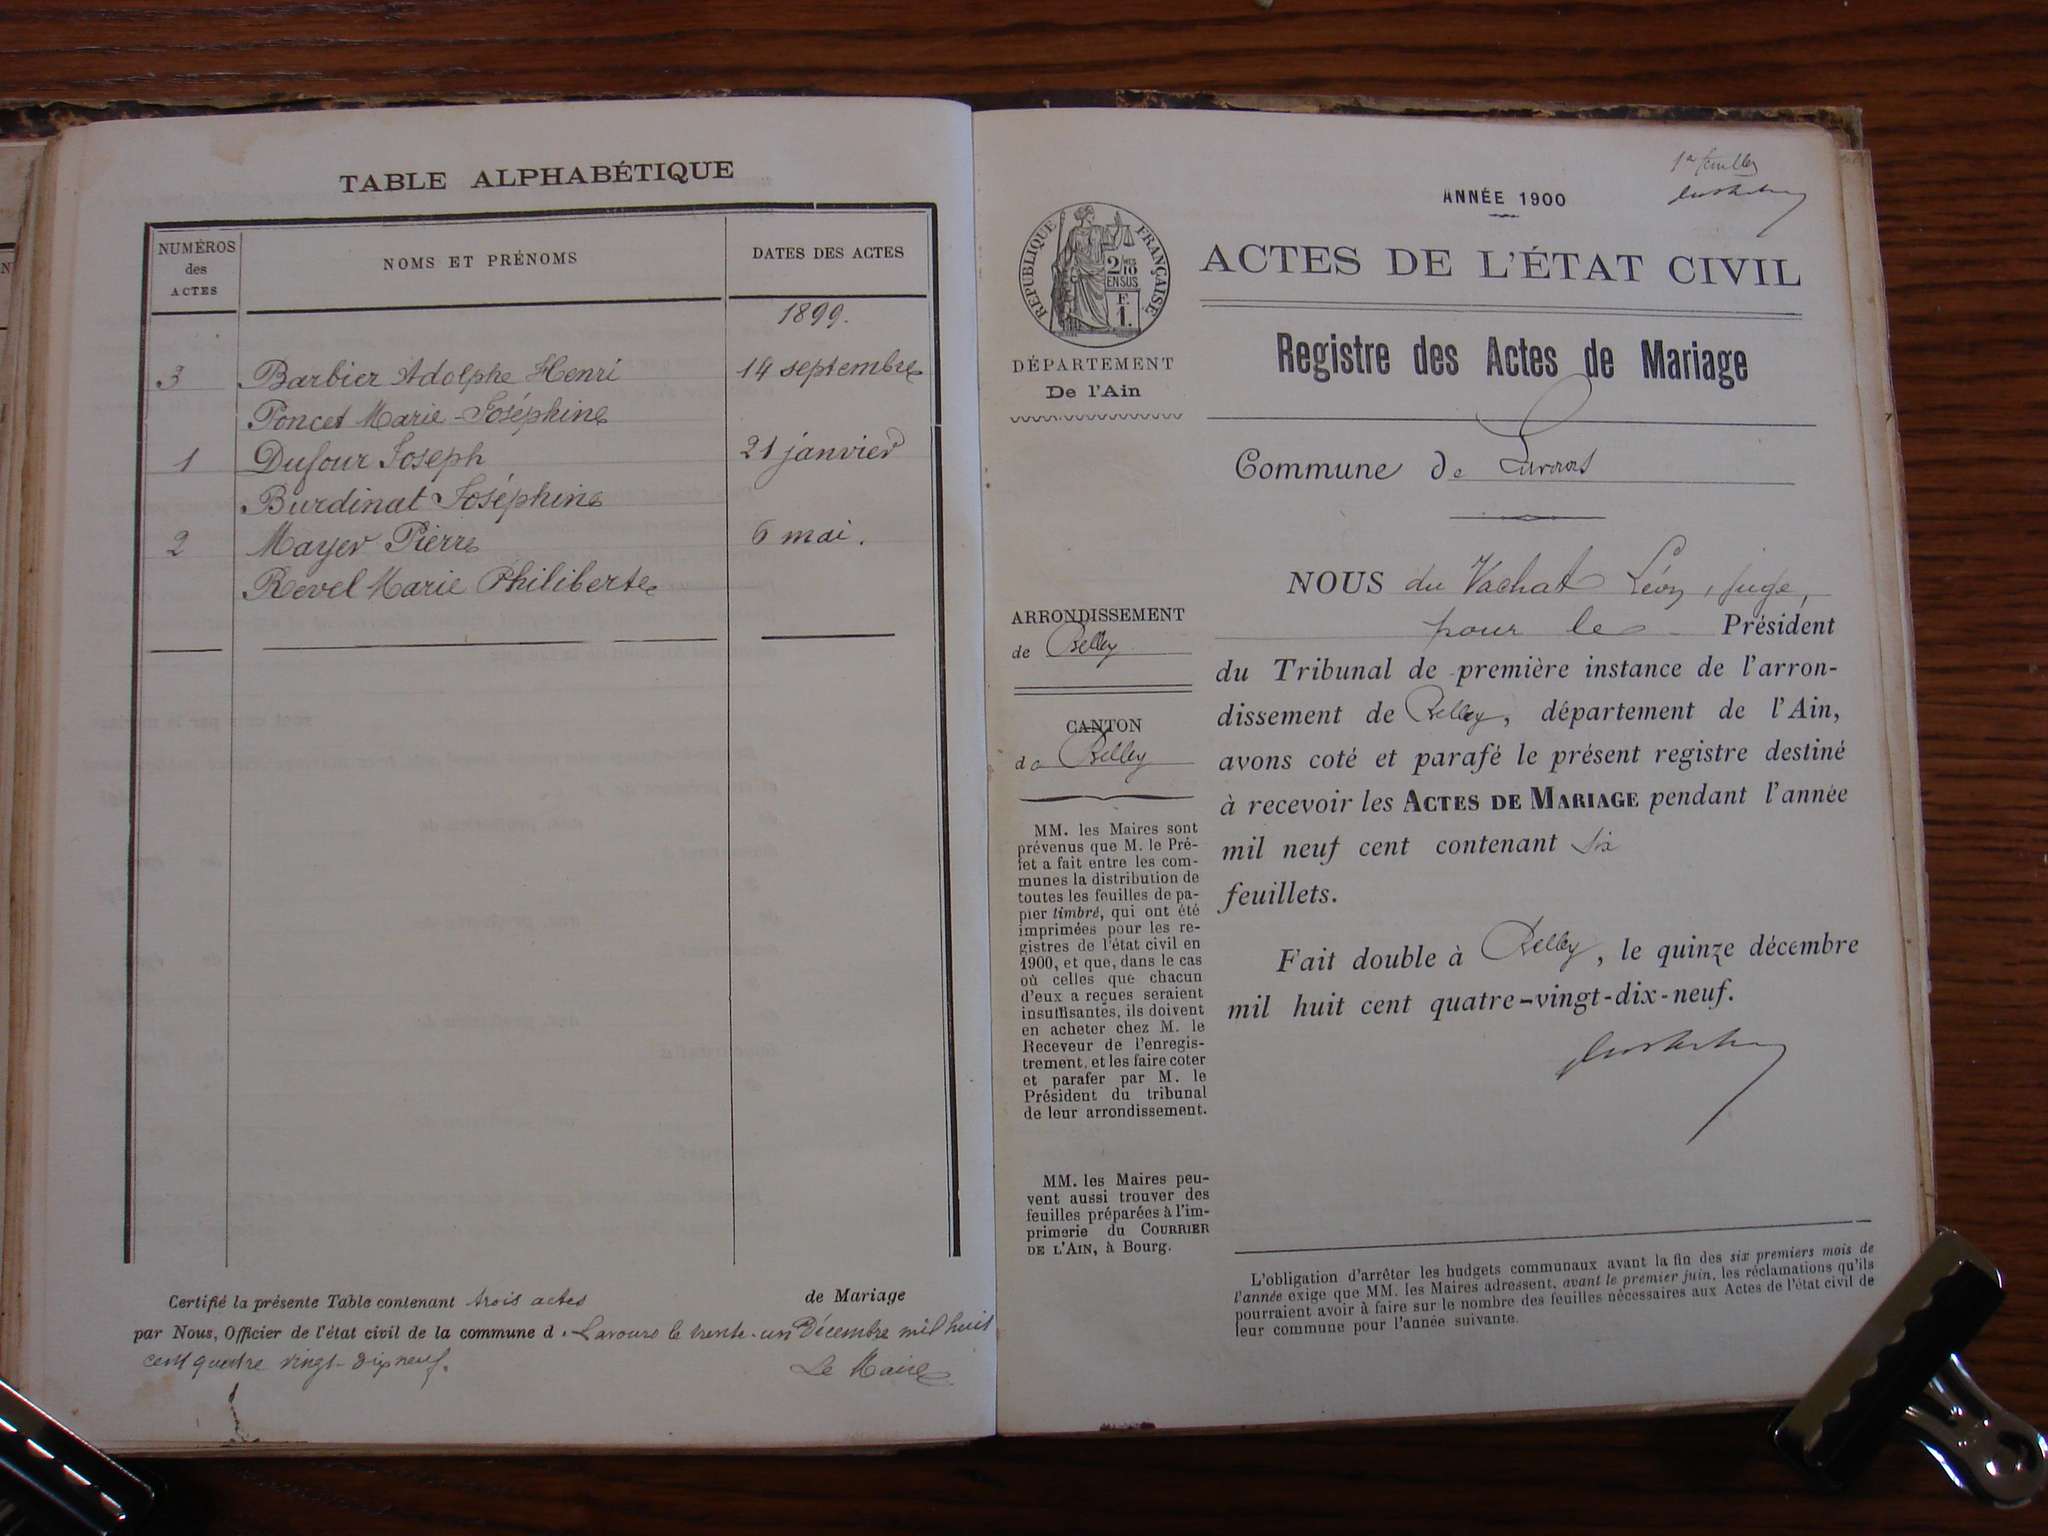 TABLE ALPHABÉTIQUE
NUMÉROS des ACTES
NOMS ET PRÉNOMS
DATES DES ACTES
1899.
3 Barbier Adolphe Henri 14 septembre
Poncet Marie-Joséphine
1 Dufour Joseph 21 janvier
Burdinat Joséphine
2 Mayer Pierre 6 mai.
Revel Marie Philiberte
Certifié la présente Table contenant trois actes de Mariage
par Nous, Officier de l'état civil de la commune d. Lavours le trente-un Décembre mil huit
cent quatre vingt-dix neuf.
Le Maire
ANNÉE 1900
RÉPUBLIQUE FRANÇAISE
2/10
EN SUS
F.
1.
ACTES DE L'ÉTAT CIVIL
Registre des Actes de Mariage
DÉPARTEMENT
De l'Ain
Commune de Lavours
ARRONDISSEMENT
de Belley
CANTON
de Belley
MM. les Maires sont
prévenus que M. le Pré-
fet a fait entre les com-
munes la distribution de
toutes les feuilles de pa-
pier timbré, qui ont été
imprimées pour les re-
gistres de l'état civil en
1900, et que, dans le cas
où celles que chacun
d'eux a reçues seraient
insuffisantes, ils doivent
en acheter chez M. le
Receveur de l'enregis-
trement, et les faire coter
et parafer par M. le
Président du tribunal
de leur arrondissement.
MM. les Maires peu-
vent aussi trouver des
feuilles préparées à l'im-
primerie du COURRIER
DE L'AIN, à Bourg.
NOUS du Vachat Léon, juge,
pour le Président
du Tribunal de première instance de l'arron-
dissement de Belley, département de l'Ain,
avons coté et parafé le présent registre destiné
à recevoir les ACTES DE MARIAGE pendant l'année
mil neuf cent contenant six
feuillets.
Fait double à Belley, le quinze décembre
mil huit cent quatre-vingt-dix-neuf.
L'obligation d'arrêter les budgets communaux avant la fin des six premiers mois de
l'année exige que MM. les Maires adressent, avant le premier juin, les réclamations qu'ils
pourraient avoir à faire sur le nombre des feuilles nécessaires aux Actes de l'état civil de
leur commune pour l'année suivante.